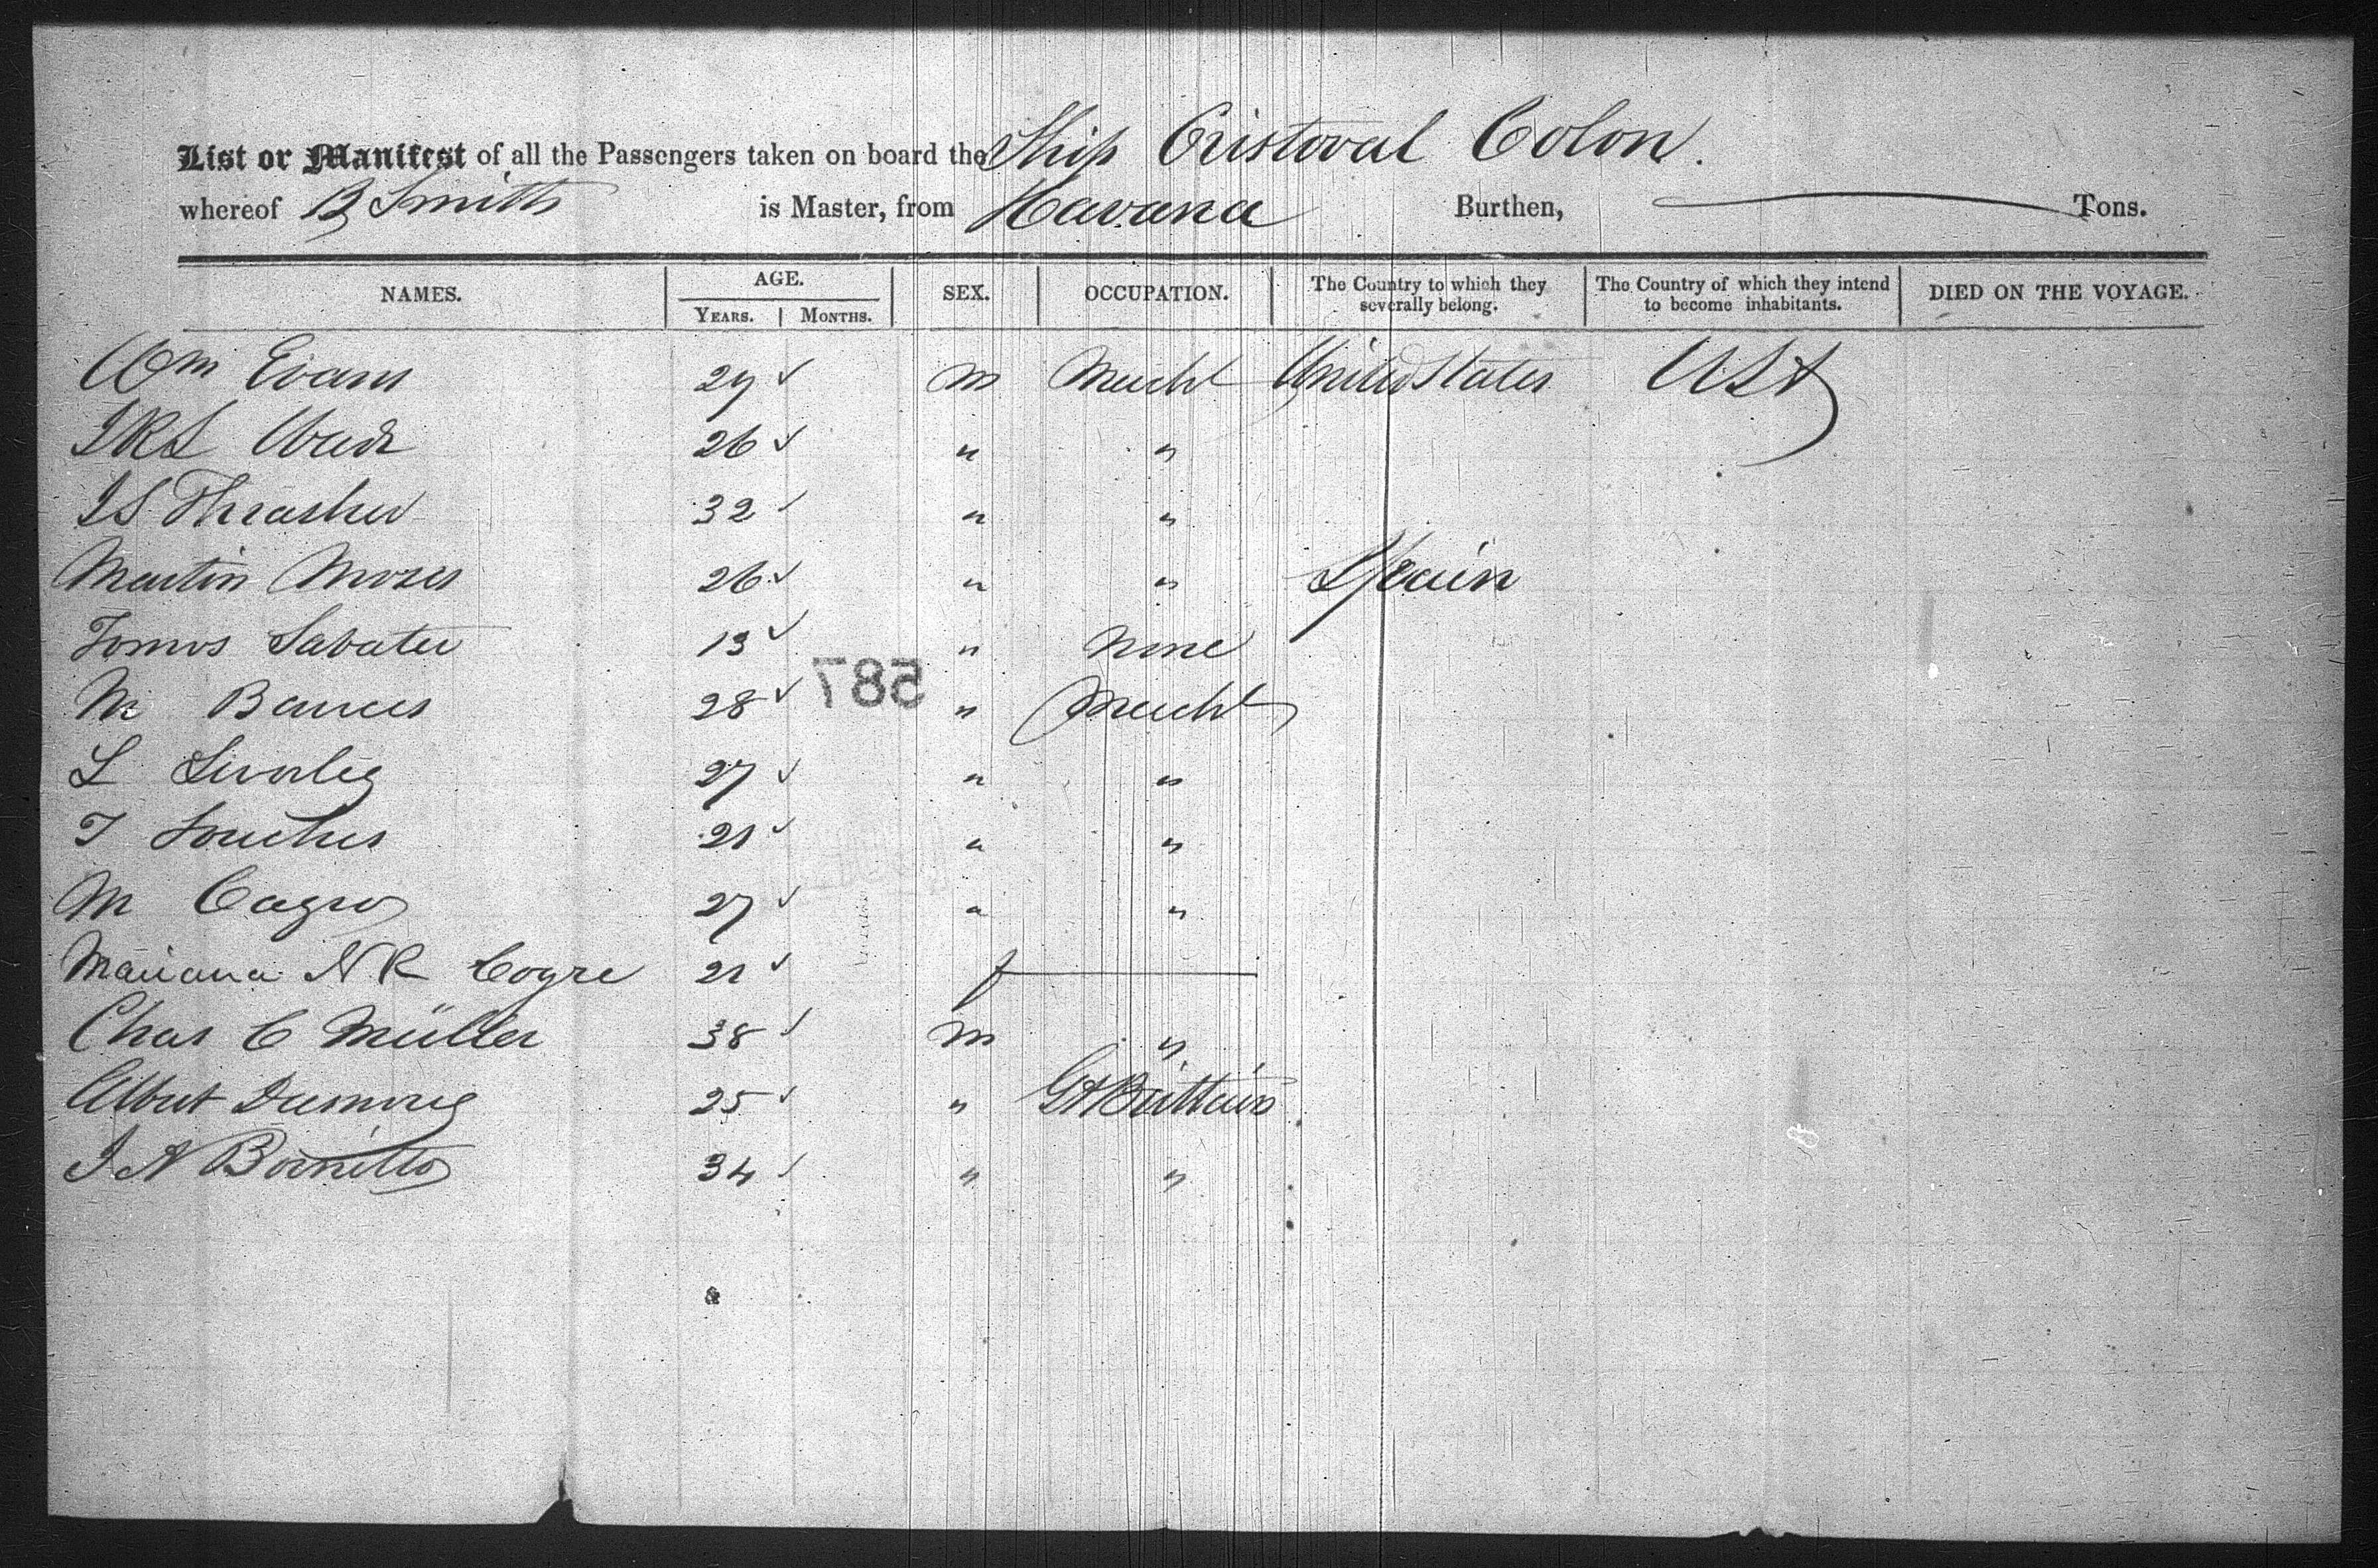 List or Manifest of all the Passengers taken on board the Ship Cristoval Colon.
whereof B Smith is Master, from Havana Burthen, Tons.
NAMES. AGE. SEX. OCCUPATION. The Country to which they severally belong. The Country of which they intend to become inhabitants. DIED ON THE VOYAGE.
YEARS. MONTHS.
Wm Evans 29 m Mercht United States USA
26 " "
J S Thrasher 32 " "
Martin Moses 26 " " Spain
Sabater 13 " none
587
M Bances 28 " Mercht
L 27 " "
T 21 " "
M 27 " "
Mariana N R Cogre 21 f
Chas C Müller 38 m "
Albert 25 " Gt Brittain
J N 34 " "